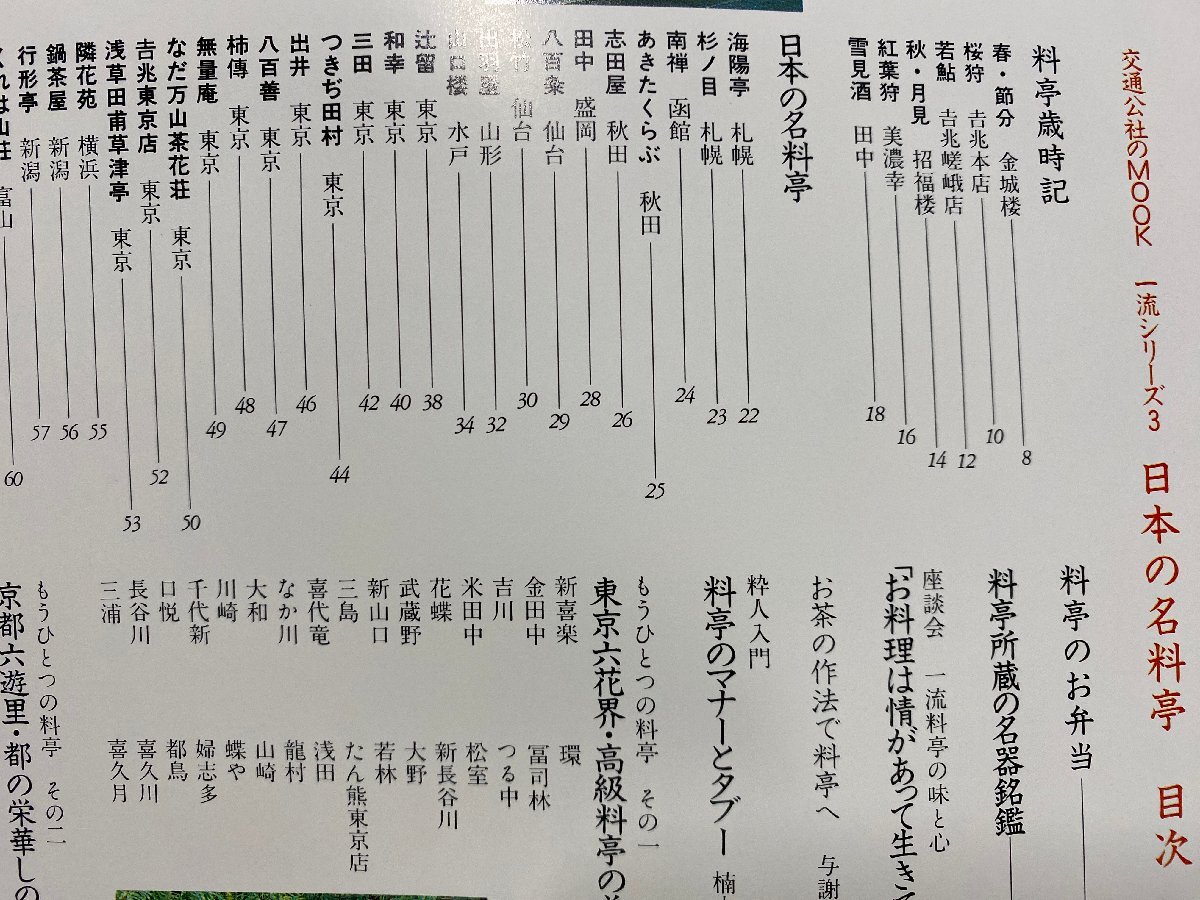 交通公社のMOOK 一流シリーズ3 日本の名料亭 目次
料亭歳時記
春・節分 金城楼 8
桜狩 吉兆本店 10
若鮎 吉兆嵯峨店 12
秋・月見 招福楼 14
紅葉狩 美濃幸 16
雪見酒 田中 18
日本の名料亭
海陽亭 札幌 22
杉ノ目 札幌 23
南禅 函館 24
あきたくらぶ 秋田 25
志田屋 秋田 26
田中 盛岡 28
八百粂 仙台 29
松竹 仙台 30
出羽屋 山形 32
山口楼 水戸 34
辻留 東京 38
和幸 東京 40
三田 東京 42
つきぢ田村 東京 44
出井 東京 46
八百善 東京 47
柿傳 東京 48
無量庵 東京 49
なだ万山茶花荘 東京 50
吉兆東京店 東京 52
浅草田甫草津亭 東京 53
隣花苑 横浜 55
鍋茶屋 新潟 56
行形亭 新潟 57
れは山荘 富山 60
料亭のお弁当
料亭所蔵の名器銘鑑
座談会 一流料亭の味と心
「お料理は情があって生き
お茶の作法で料亭へ 与謝
粋人入門
料亭のマナーとタブー 楠
もうひとつの料亭 その一
東京六花界・高級料亭の
新喜楽 環
金田中 冨司林
吉川 つる中
米田中 松室
花蝶 新長谷川
武蔵野 大野
新山口 若林
三島 たん熊東京店
喜代竜 浅田
なか川 龍村
大和 山崎
川崎 蝶や
千代新 婦志多
口悦 都鳥
長谷川 喜久川
三浦 喜久月
もうひとつの料亭 その二
京都六遊里・都の栄華しの